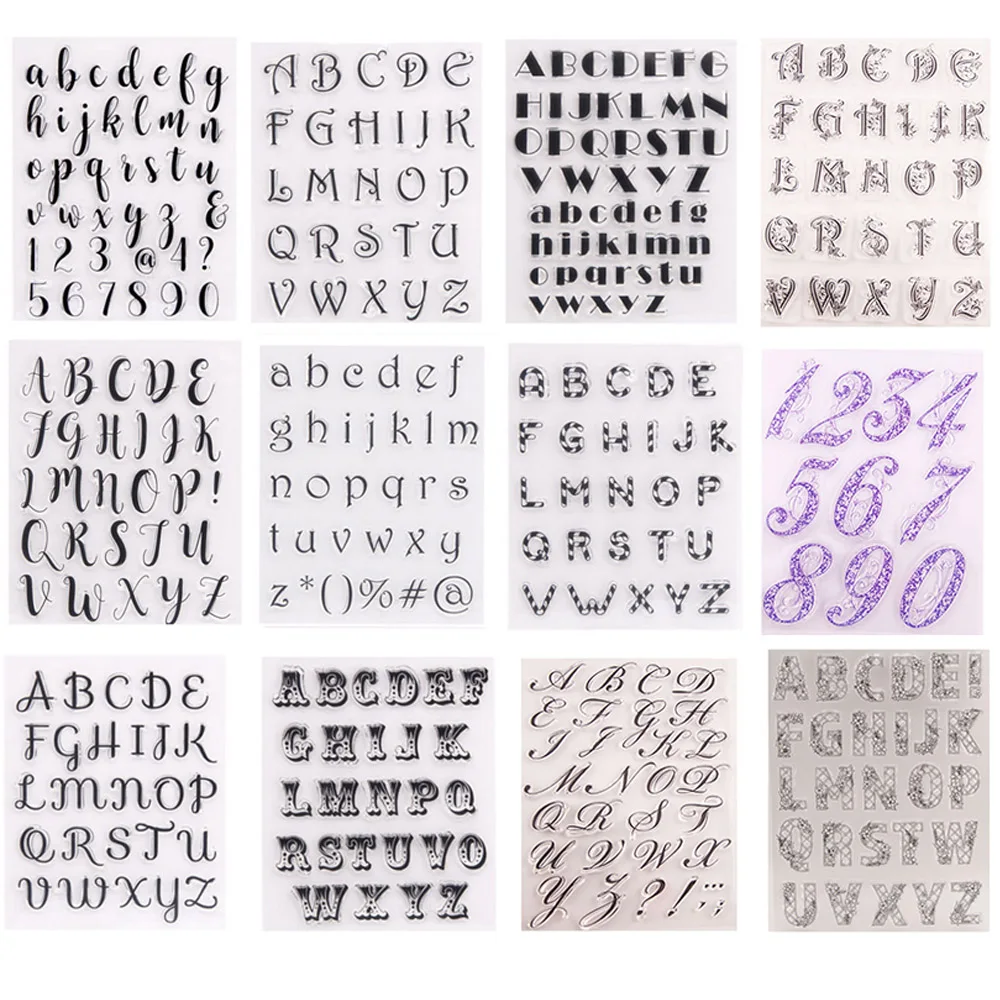 a b c d e f g
h i j k l m n
o p q r s t u
v w x y z &
1 2 3 @ 4 ?
5 6 7 8 9 0
A B C D E
F G H I J K
L M N O P
Q R S T U
V W X Y Z
A B C D E F G
H I J K L M N
O P Q R S T U
V W X Y Z
a b c d e f g
h i j k l m n
o p q r s t u
v w x y z
A B C D E
F G H I J K
L M N O P
Q R S T U
V W X Y Z
A B C D E
F G H I J K
L M N O P !
Q R S T U
V W X Y Z
a b c d e f
g h i j k l m
n o p q r s
t u v w x y
z * ( ) % # @
A B C D E
F G H I J K
L M N O P
Q R S T U
V W X Y Z
1 2 3 4
5 6 7
8 9 0
A B C D E
F G H I J K
L M N O P
Q R S T U
V W X Y Z
A B C D E F
G H I J K
L M N P Q
R S T U V O
W X Y Z
A B C D
E F G H
I J K L
M N O P
Q R S T
U V W X
Y Z ? ! , : ;
A B C D E !
F G H I J K
L M N O P
Q R S T W
U V X Y Z